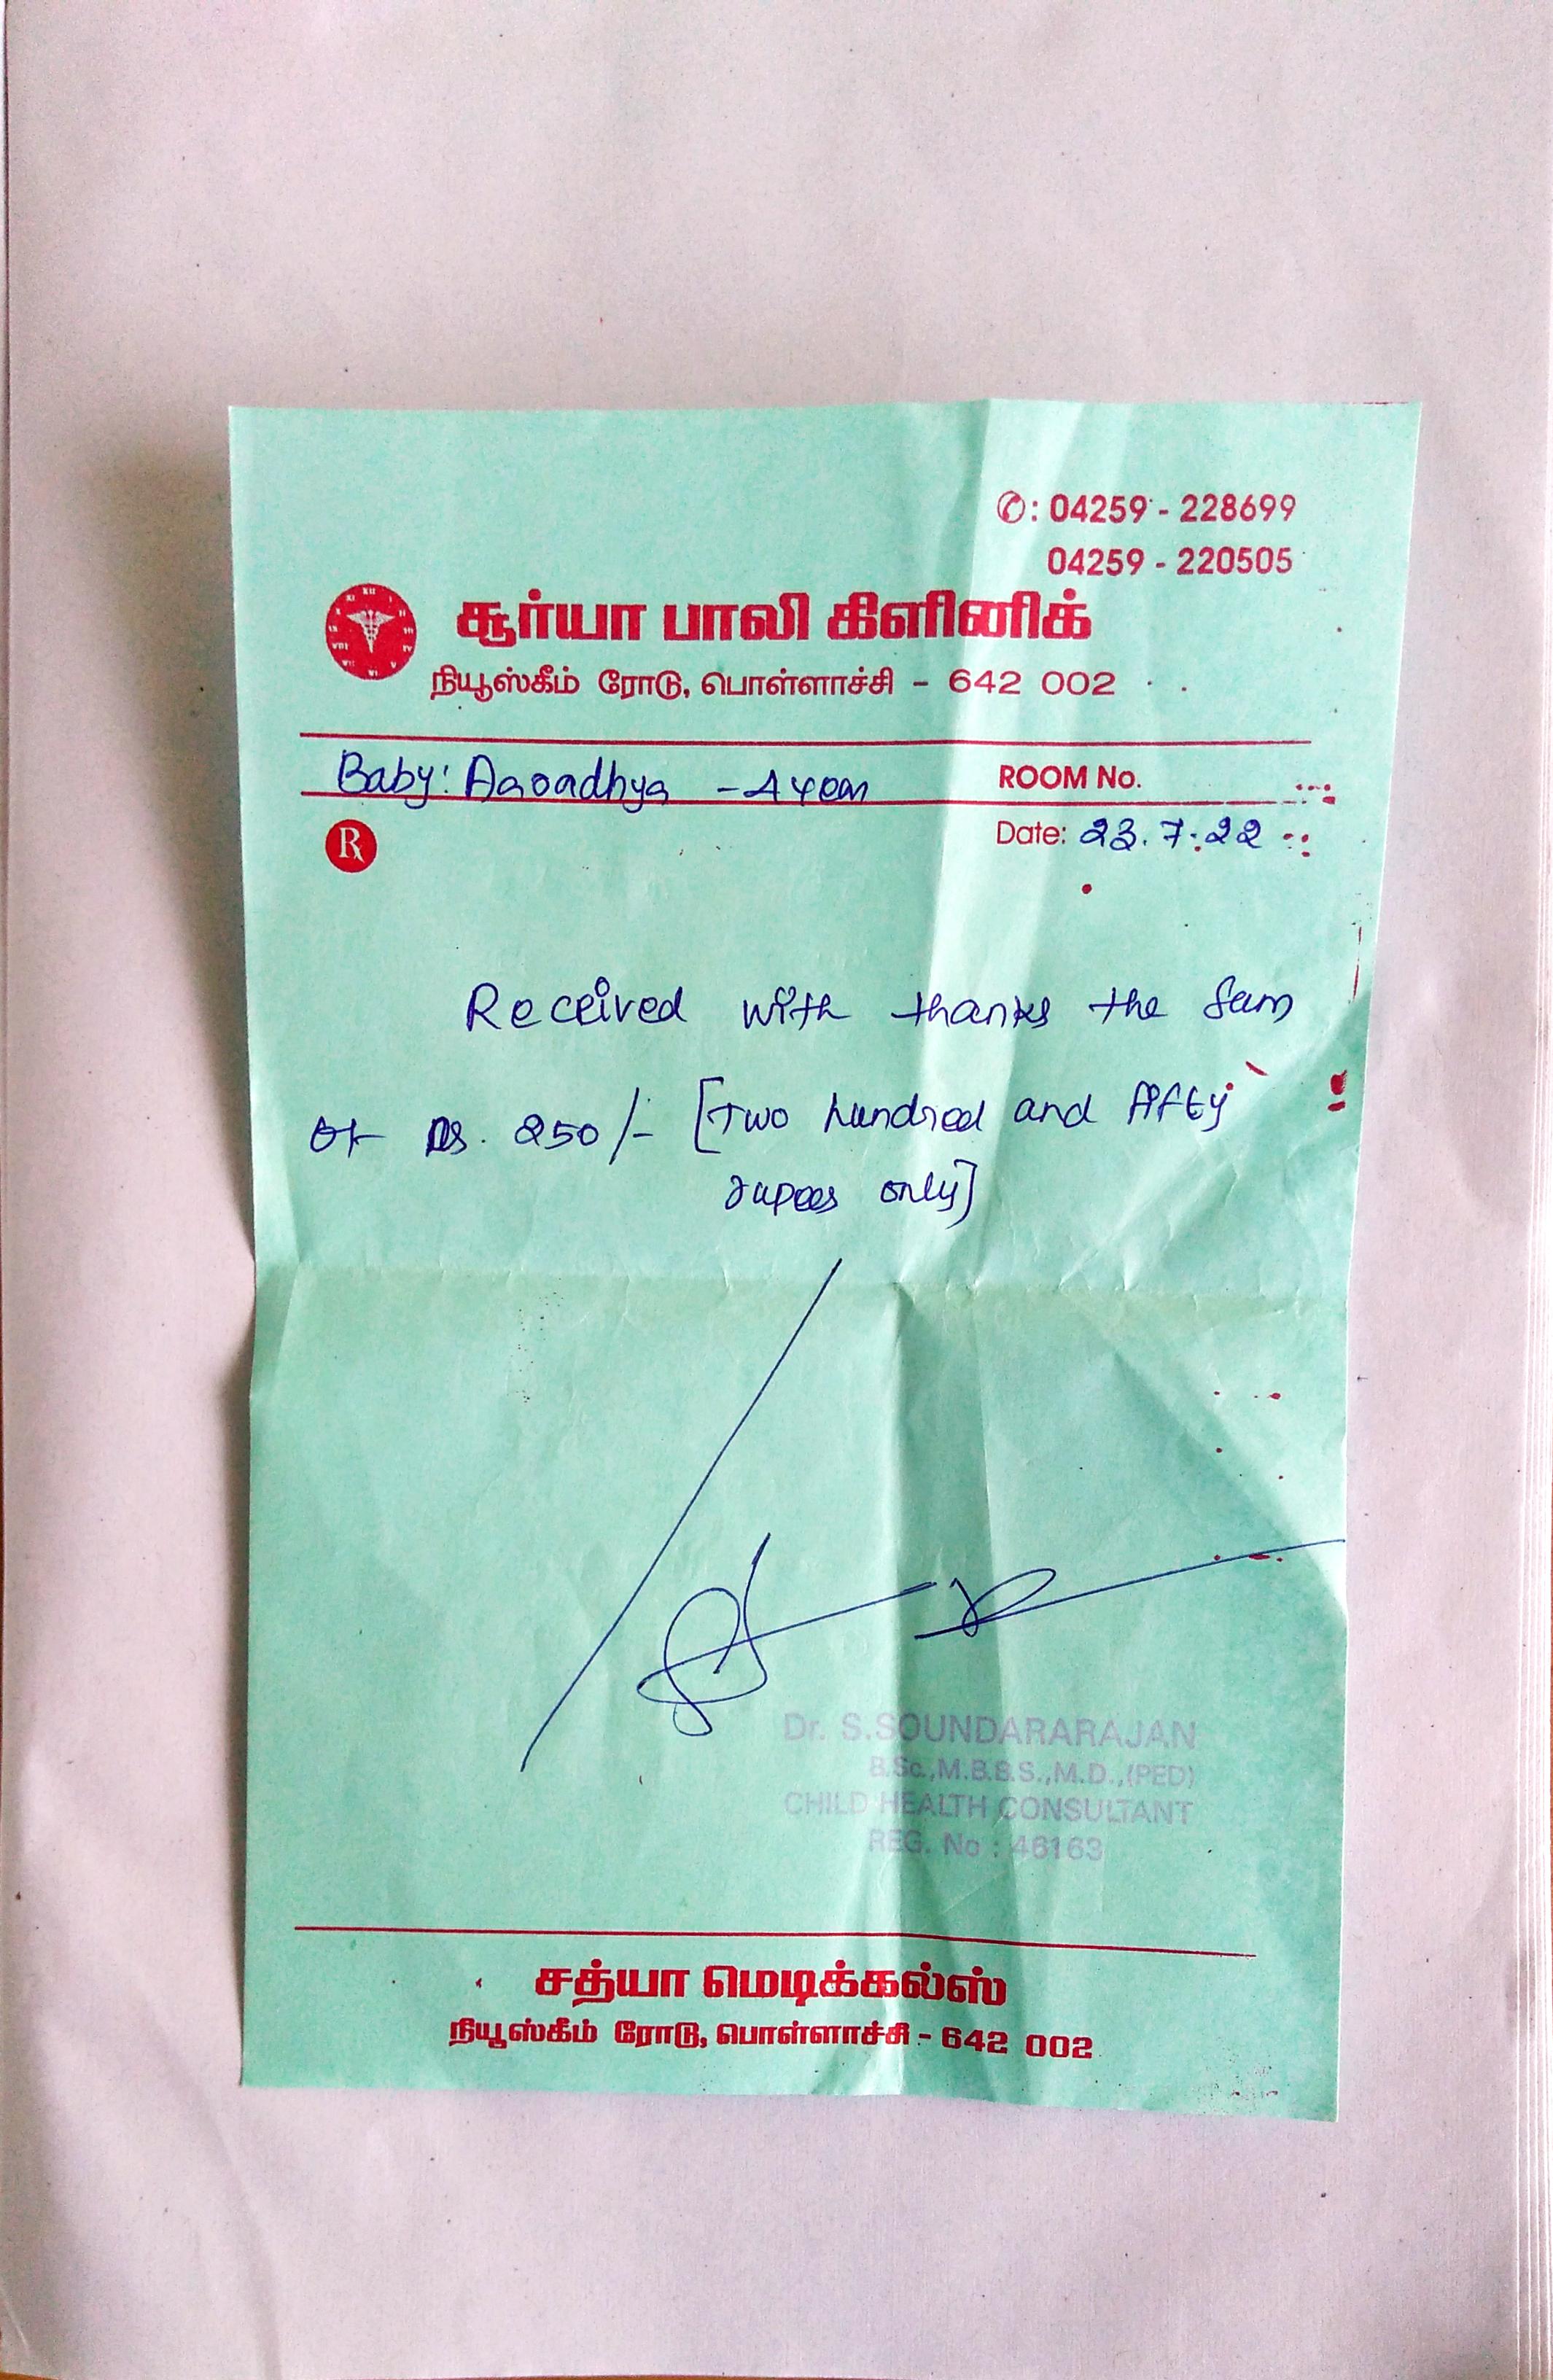 ✆: 04259 - 228699
04259 - 220505
சூர்யா பாலி கிளினிக்
நியூஸ்கீம் ரோடு, பொள்ளாச்சி - 642 002
Baby: Aaradhya - 4 year
ROOM No.
Rx
Date: 23.7.22
Received with thanks the sum
of Rs. 250/- [Two hundred and fifty
rupees only]
Dr. S.SOUNDARARAJAN
B.Sc.,M.B.B.S.,M.D.,(PED)
CHILD HEALTH CONSULTANT
REG. No : 46163
சத்யா மெடிக்கல்ஸ்
நியூஸ்கீம் ரோடு, பொள்ளாச்சி - 642 002